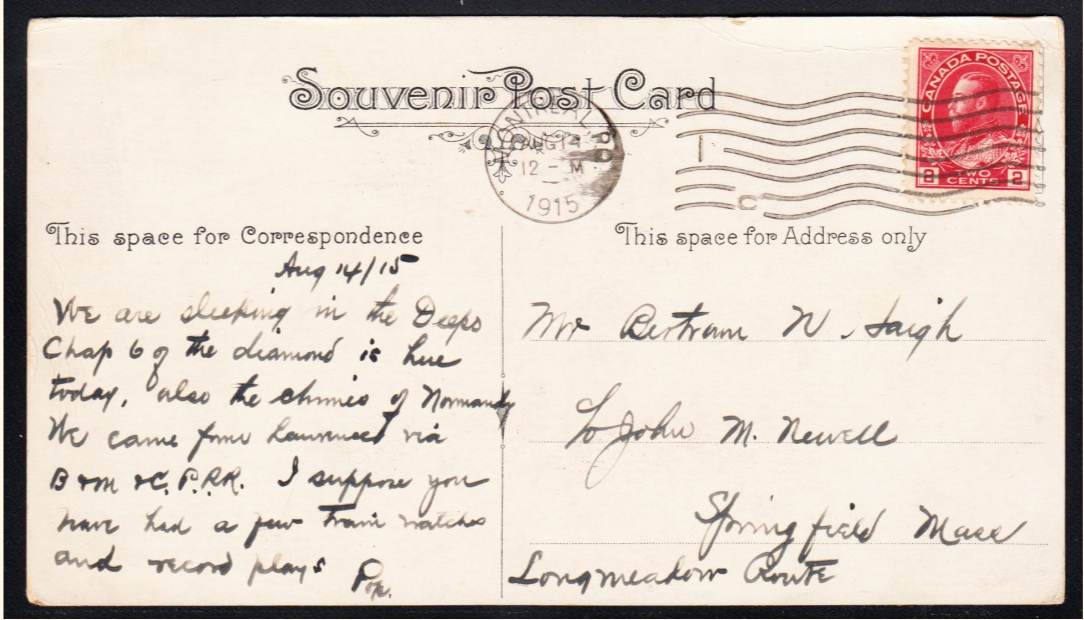 Souvenir Post Card
MONTREAL, P.Q.
AUG 14
12 - M
1915
CANADA POSTAGE
2 TWO CENTS 2
This space for Correspondence
This space for Address only
Aug 14/15
We are sleeping in the Deeps
Chap 6 of the diamond is here
today, also the chimes of Normandy
We came from via
B & M & C.P.R.R. I suppose you
have had a few train watches
and record plays
Pop.
Mr Bertram N. Saigh
John M. Newell
Springfield Mass
Longmeadow Route